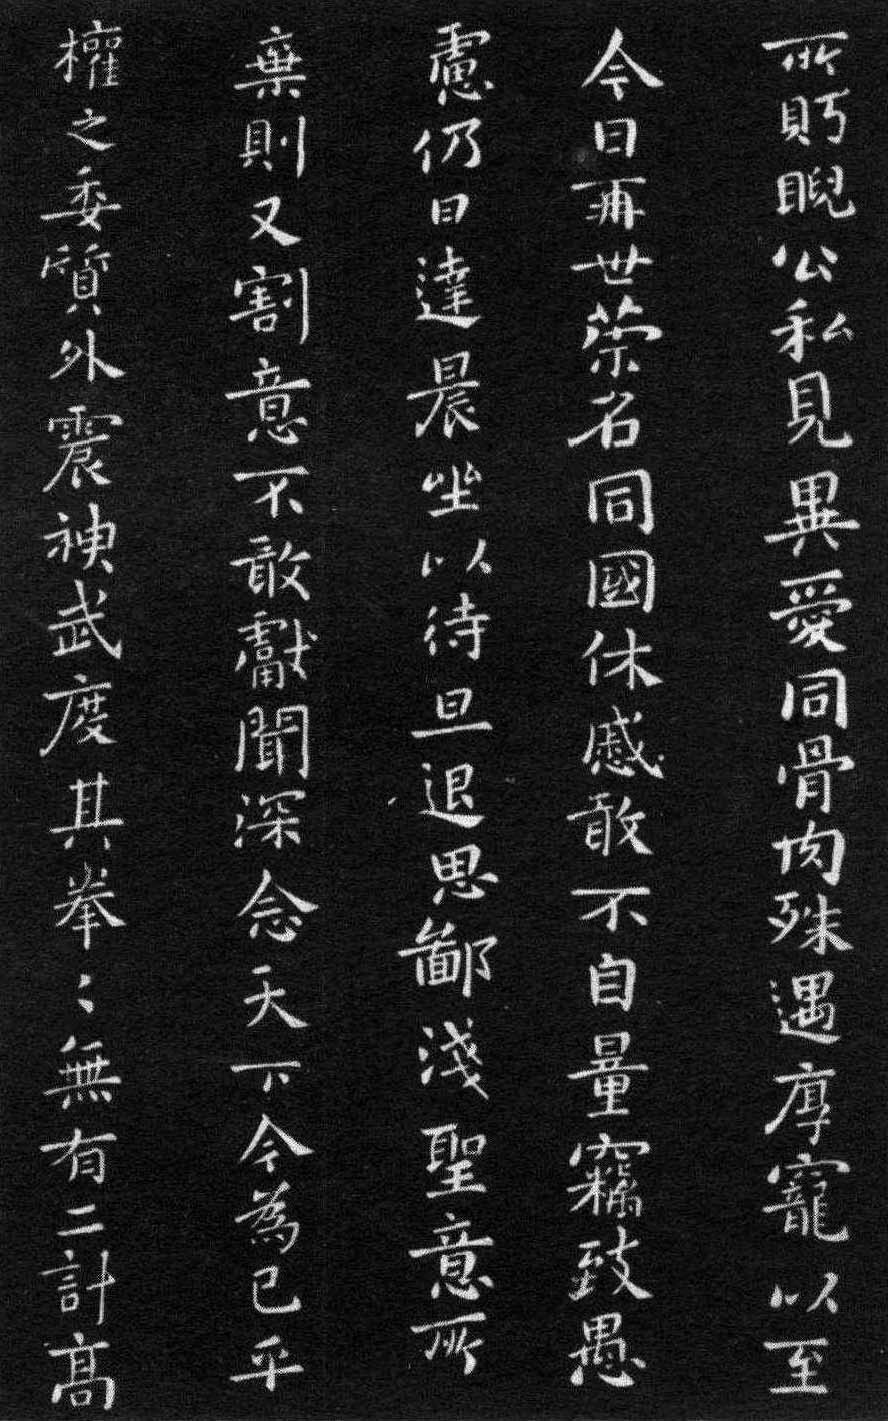 所眄睨公私見異愛同骨肉殊遇厚寵以至
今日再世榮名同國休慼敢不自量竊致愚
慮仍日達晨坐以待旦退思鄙淺聖意所
棄則又割意不敢獻聞深念天下今為已平
權之委質外震神武度其拳〻無有二計高